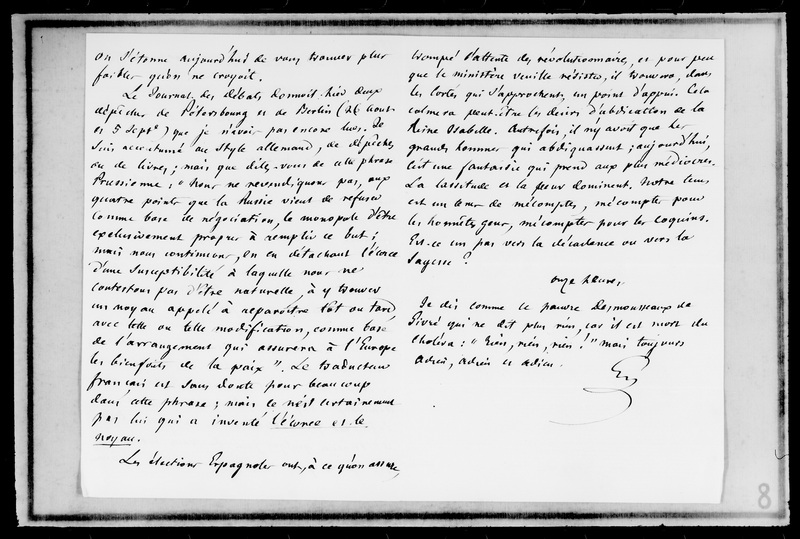 on s'étonne aujourd'hui de vous trouver plus
faibles qu'on ne croyoit.
Le Journal des débats donnoit hier deux
dépêches de Pétersbourg et de Berlin (26 août
et 5 Septe) que je n'avois pas encore lues. Je
suis accoutumé au style allemand, de dépêches
ou de livres ; mais que dites-vous de cette phrase
Prussienne : "Nous ne revendiquons pas, aux
quatre points que la Russie vient de refuser
comme base de négociation, le monopole d'être
exclusivement propres à remplir ce but ;
mais nous continuons, en en détachant l'écorce
d'une susceptibilité à laquelle nous ne
contestons pas d'être naturelle, à y trouver
un noyau appelé à reparoître tôt ou tard,
avec telle ou telle modification, comme base
de l'arrangement qui assurera à l'Europe
les bienfaits de la paix". Le traducteur
français est sans doute pour beaucoup
dans cette phrase ; mais ce n'est certainement
pas lui qui a inventé l'écorce et le
noyau.
Les élections Espagnoles ont, à ce qu'on assure,
trompé l'attente des révolutionnaires, et pour peu
que le ministère veuille résister, il trouvera, dans
les Cortès qui s'approchent, un point d'appui. Cela
calmera peut-être les désirs d'abdication de la
Reine Isabelle. Autrefois, il n'y avoit que les
grands hommes qui abdiquassent ; aujourd'hui,
c'est une fantaisie qui prend aux plus médiocres.
La lassitude et la peur dominent. Notre tems
est un tems de mécomptes, mécomptes pour
les honnêtes gens, mécomptes pour les coquins.
Est-ce un pas vers la décadence ou vers la
sagesse ?
onze heures.
Je dis comme le pauvre Desmousseaux de
Givré qui ne dit plus rien, car il est mort du
choléra : "Rien, rien, rien !" mais toujours
adieu, adieu et adieu.
8